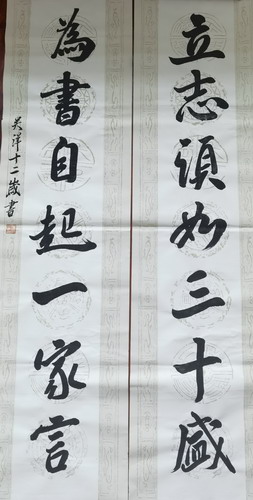 立志須如三十盛
為書自起一家言
吴洋十二歲書